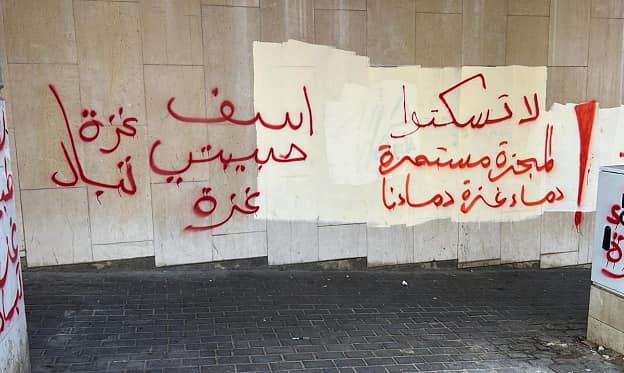 لا تسكتوا
المجزرة مستمرة !
دماء غزة دمادنا
اسف
حبيبتي
غزة
غزة